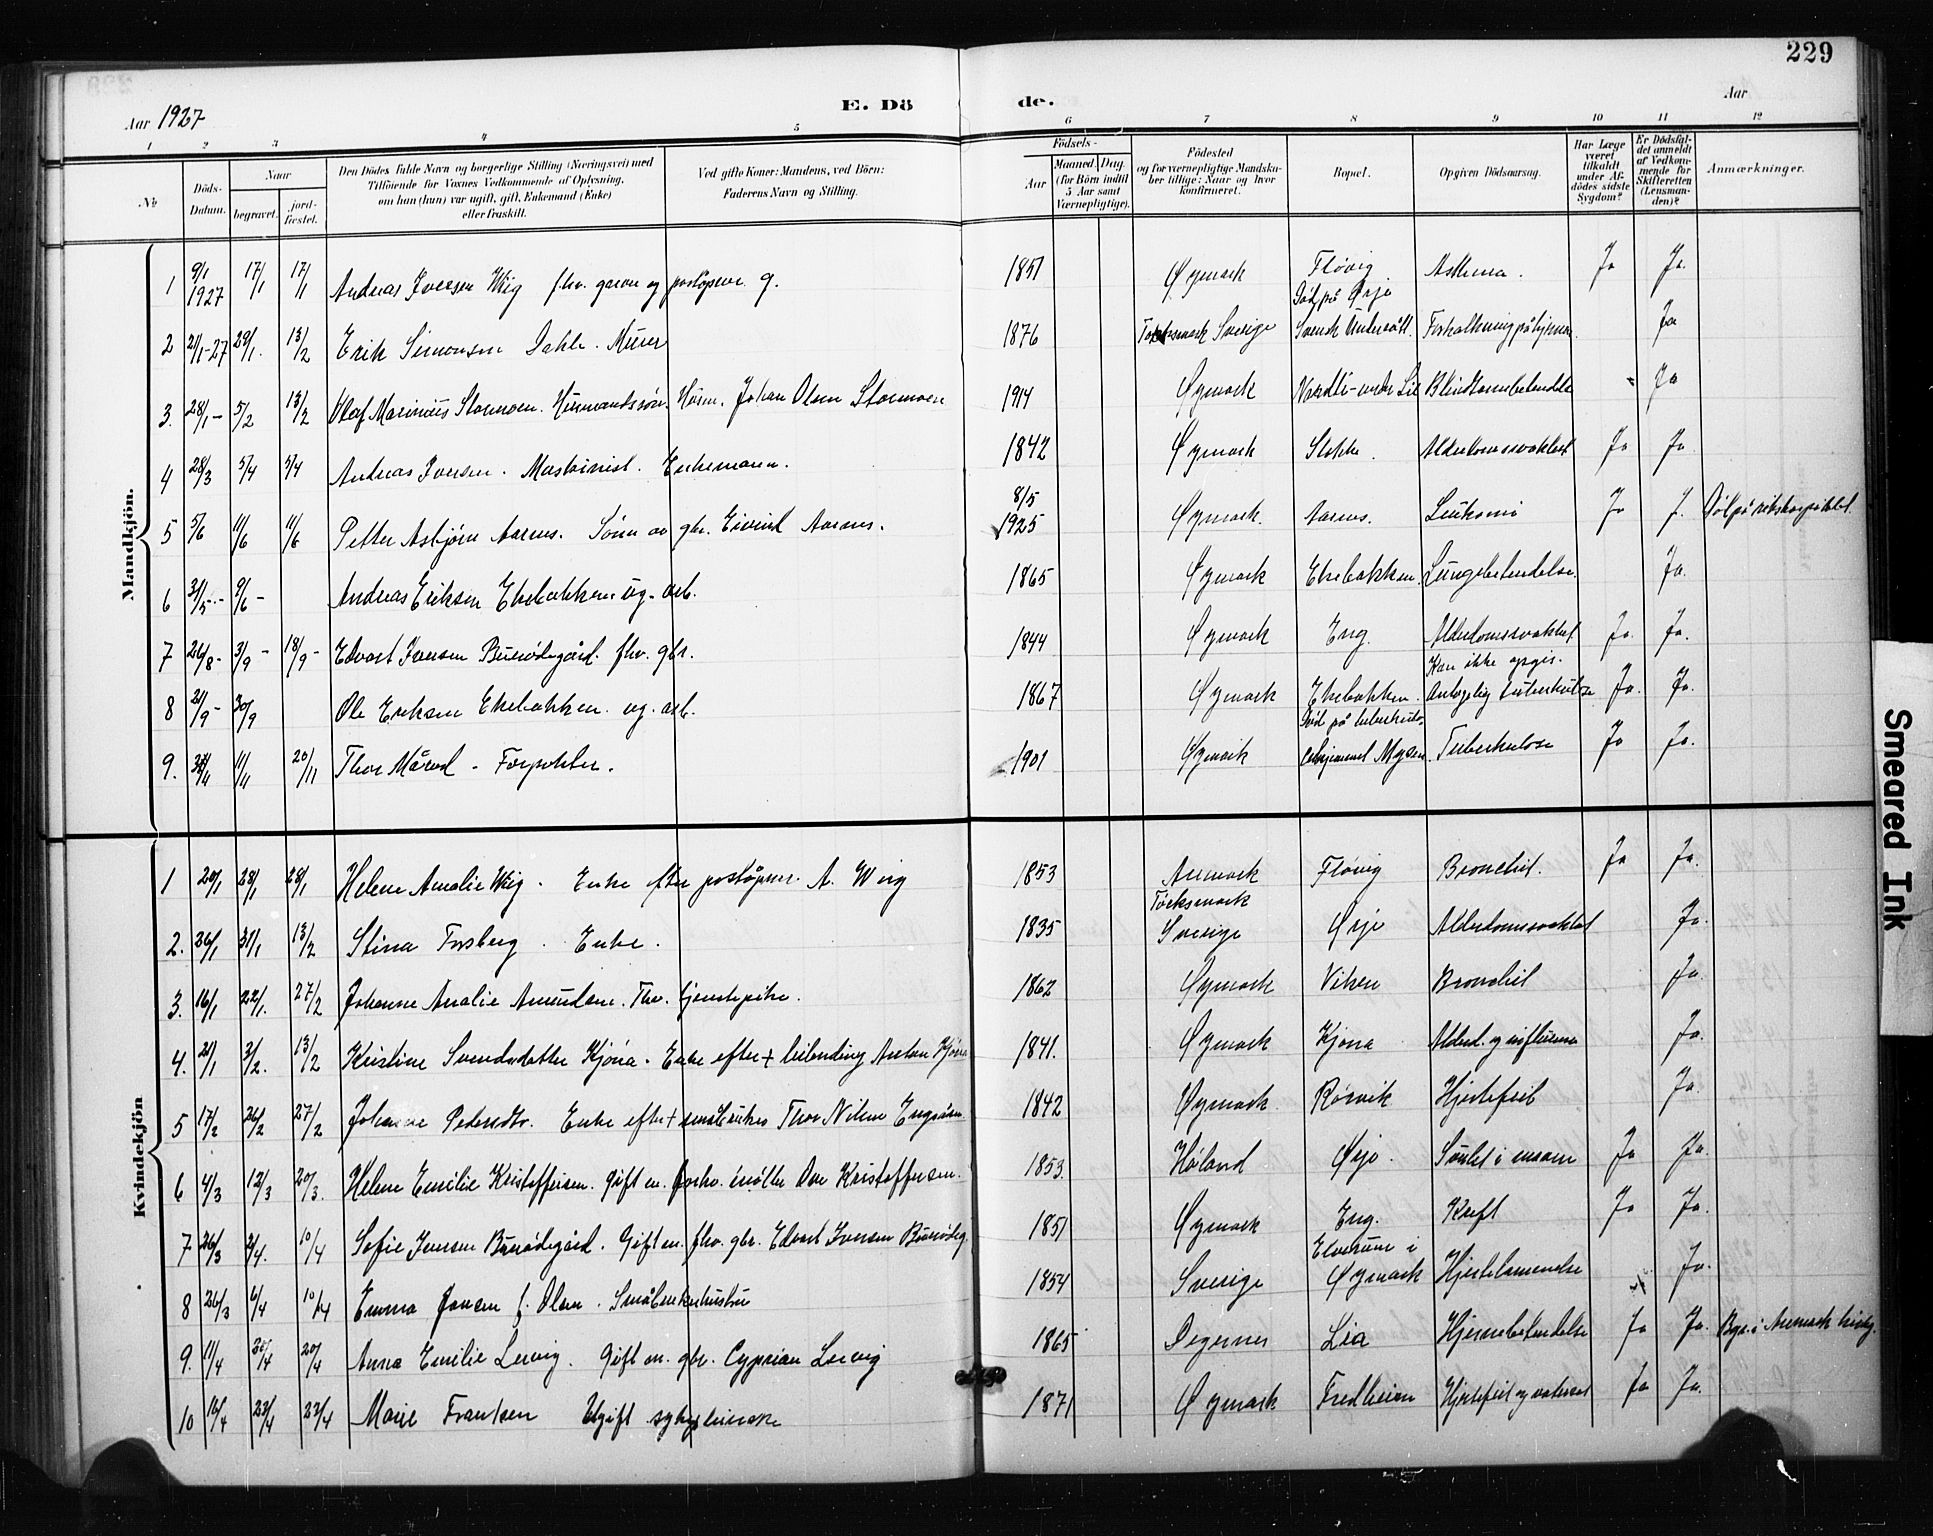 229
Aar 1927
E. Dö
de.
Aar
1 2 3 4 5 6 7 8 9 10 11 12
№
Döds-Datum.
Naar
begravet.
jord-fæstet.
Den Dödes fulde Navn og borgerlige Stilling (Næringsvei) med Tilföiende for Voxnes Vedkommende af Oplysning, om han (hun) var ugift, gift, Enkemand (Enke) eller fraskilt.
Ved gifte Koner: Mandens, ved Börn: Faderens Navn og Stilling.
Födsels-
Aar
Maaned. Dag. (for Börn indtil 5 Aar samt Værnepligtige).
Födested og for værnepligtige Mandskaber tillige: Naar og hvor konfirmeret.
Bopæl.
Opgiven Dödsaarsag.
Har Læge været tilkaldt under Afdödes sidste Sygdom?
Er Dödsfaldet anmeldt af Vedkommende for Skifteretten (Lensmanden)?
Anmærkninger.
Mandkjön.
1 9/1 1927 17/1 17/1 Andreas Iversen Wiig fhv. postöpner g. 1851 Øymark Flövig Död på Ørje Asthma. Ja Ja.
2 21/1-27 29/1. 13/2 Erik Simonsen Dahle. Murer 1876 Sverige Svensk Undersått. Forkalkning på hjernen. Ja
3. 28/1- 5/2 13/2 Olaf Marinius Stormoen. Husmandssön. Husm. Johan Olsen Stormoen 1914 Øymark under Lie Blindtarmbetendelse - Ja
4 28/3 5/4 5/4 Andreas Iversen. Maskinist. Enkemann. 1842 Øymark Stokke. Alderdomssvakhet Ja Ja.
5 5/6 11/6 11/6 Petter Asbjörn Aarnes. Sönn av gbr. Eivind Aarnes. 8/5 1925 Øymark. Aarnes. Leukemi Ja J. Död på rikshospitalet.
6 31/5- 9/6- Andreas Eriksen Ekebakken ug. arb. 1865 Øymark Ekebakken. Lungebetendelse. Ja.
7 26/8- 3/9- 18/9- Edvart Iversen Buerödegård. fhv. gbr. 1844 Øymark Eng. Alderdomssvakhet Ja. Ja.
8 21/9- 30/9 Ole Eriksen Ekebakken. ug. arb. 1867 Øymark Ekebakken. Kan ikke opgis. Antagelig tuberkulose Ja. Ja.
9. 11/11 20/11 Thor Mårud - Forpakter. 1901 Øymark Död på tuberkulosehjemmet Mysen. Tuberkulose Ja Ja.
Kvindekjön
1 20/1 28/1 28/1 Helene Amalie Wiig. Enke efter postöpner. A. Wiig 1853 Aremark Flövig Bronchit. Ja Ja.
2. 26/1 31/1 13/2 Stina Forsberg. Enke. 1835 Töcksmark Sverige Ørje Alderdomssvakhet Ja.
3. 16/1 22/1. 27/2 Johanne Amalie Amundsen. Fhv. tjenestepike. 1862 Øymark Viken Bronchit Ja.
4. 21/1 3/2. 13/2 Kristine Svendsdatter Kjöna. Enke efter + Anton Kjöna 1841. Øymark Kjöna Alderd. og influensa Ja.
5 17/2 26/2 27/2 Johanne Pedersdtr. Enke efter + småbruker Thor Nilsen 1842 Øymark Rörvik Hjertefeil Ja.
6 4/3 12/3 20/3. Helene Emilie Kristoffersen. Gift m. forhv. möller Ole Kristoffersen. 1853. Höland Ørje. Ja Ja.
7 26/3 2/4. 10/4 Sofie Iversen Buerödegård. Gift m. fhv. gbr. Edvart Iversen Buerödeg. 1851 Øymark Eng. Kreft Ja Ja.
8 26/3 6/4 10/4 Emma Jansen f. Olsen. Småbrukerhustru 1854 Sverige Elverum i Øymark Hjertelammelse Ja.
9. 11/4 20/4 20/4 Anna Emilie Lervig. Gift m. gbr. Cyprian Lervig 1865 Degernes Lia Hjernebetendelse Ja Ja. Bgr. i Aremark
10 16/4 23/4 23/4 Marie Frantsen Ugift syerske 1871 Øymark Fredheim Hjertefeil og vatersot Ja Ja.
Smeared Ink